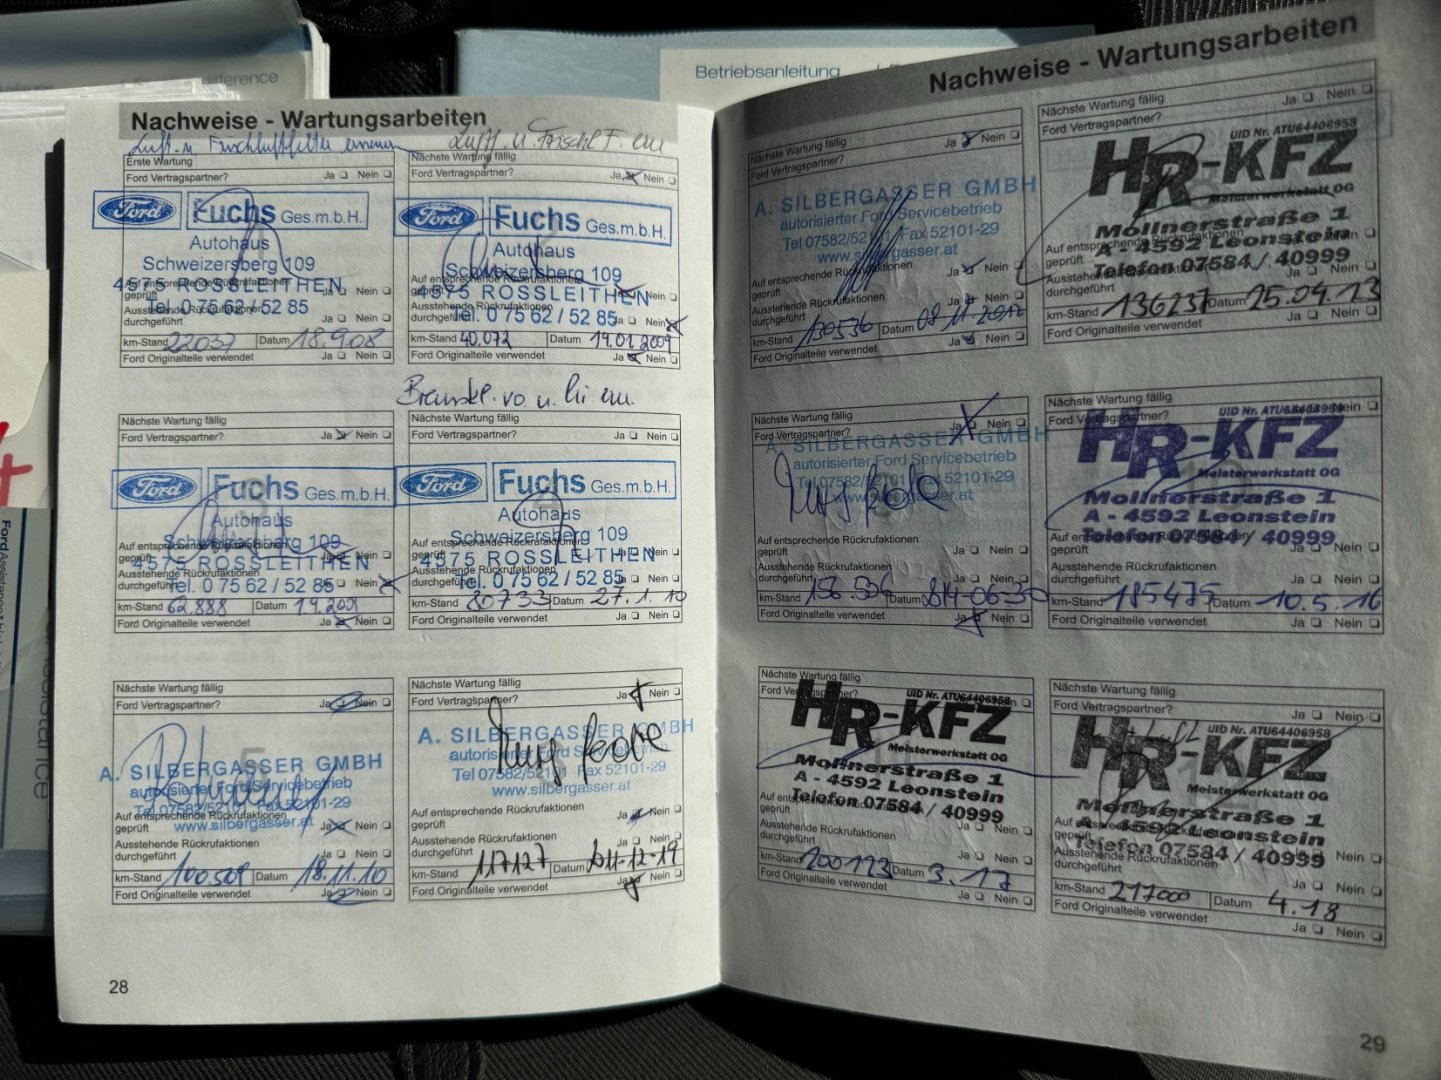 Betriebsanleitung
difference
Nachweise - Wartungsarbeiten
Luft- u. Frischluftfilter
Erste Wartung
Ford Vertragspartner? Ja Nein
Ford Fuchs Ges.m.b.H.
Autohaus
Schweizersberg 109
4575 ROSSLEITHEN
Tel. 0 75 62 / 52 85
Auf entsprechende Rückrufaktionen
geprüft Ja Nein
Ausstehende Rückrufaktionen
durchgeführt Ja Nein
km-Stand 22037 Datum 18.9.08
Ford Originalteile verwendet Ja Nein
Luft. u. Frischl F. ern
Nächste Wartung fällig
Ford Vertragspartner? Ja Nein
Ford Fuchs Ges.m.b.H.
Autohaus
Schweizersberg 109
4575 ROSSLEITHEN
Tel. 0 75 62 / 52 85
Auf entsprechende Rückrufaktionen
geprüft Nein
Ausstehende Rückrufaktionen
durchgeführt Ja Nein
km-Stand 40.072 Datum 19.01.2009
Ford Originalteile verwendet Ja Nein
Nächste Wartung fällig
Ford Vertragspartner? Ja Nein
Ford Fuchs Ges.m.b.H.
Autohaus
Schweizersberg 109
4575 ROSSLEITHEN
Tel. 0 75 62 / 52 85
Auf entsprechende Rückrufaktionen
geprüft Ja Nein
Ausstehende Rückrufaktionen
durchgeführt Ja Nein
km-Stand 62.888 Datum
Ford Originalteile verwendet Ja Nein
vo. u. hi ern.
Nächste Wartung fällig
Ford Vertragspartner? Ja Nein
Ford Fuchs Ges.m.b.H.
Autohaus
Schweizersberg 109
4575 ROSSLEITHEN
Tel. 0 75 62 / 52 85
Auf entsprechende Rückrufaktionen
geprüft Ja Nein
Ausstehende Rückrufaktionen
durchgeführt Ja Nein
km-Stand 80733 Datum 27.1.10
Ford Originalteile verwendet Ja Nein
Nächste Wartung fällig
Ford Vertragspartner? Ja Nein
A. SILBERGASSER GMBH
autorisierter Ford Servicebetrieb
Tel 07582/52101 Fax 52101-29
www.silbergasser.at
Auf entsprechende Rückrufaktionen
geprüft Ja Nein
Ausstehende Rückrufaktionen
durchgeführt Ja Nein
km-Stand 100509 Datum 18.11.10
Ford Originalteile verwendet Ja Nein
Nächste Wartung fällig
Ford Vertragspartner? Ja Nein
A. SILBERGASSER GMBH
autorisierter Ford Servicebetrieb
Tel 07582/52101 Fax 52101-29
www.silbergasser.at
Auf entsprechende Rückrufaktionen
geprüft Ja Nein
Ausstehende Rückrufaktionen
durchgeführt Ja Nein
km-Stand 117127 Datum
Ford Originalteile verwendet Ja Nein
28
Nachweise - Wartungsarbeiten
Nächste Wartung fällig
Ford Vertragspartner? Ja Nein
A. SILBERGASSER GMBH
autorisierter Ford Servicebetrieb
Tel 07582/52101 Fax 52101-29
www.silbergasser.at
Auf entsprechende Rückrufaktionen
geprüft Ja Nein
Ausstehende Rückrufaktionen
durchgeführt Ja Nein
km-Stand 130536 Datum 08 11 2012
Ford Originalteile verwendet Ja Nein
Nächste Wartung fällig
Ford Vertragspartner? Ja Nein
UID Nr. ATU64406958
HR-KFZ
Meisterwerkstatt OG
Mollnerstraße 1
A - 4592 Leonstein
Telefon 07584 / 40999
Auf entsprechende Rückrufaktionen
geprüft Ja Nein
Ausstehende Rückrufaktionen
durchgeführt Ja Nein
km-Stand 136237 Datum 25.04.13
Ford Originalteile verwendet Ja Nein
Nächste Wartung fällig
Ford Vertragspartner? Ja Nein
A. SILBERGASSER GMBH
autorisierter Ford Servicebetrieb
Tel 07582/52101 Fax 52101-29
www.silbergasser.at
Auf entsprechende Rückrufaktionen
geprüft Ja Nein
Ausstehende Rückrufaktionen
durchgeführt Ja Nein
km-Stand 156.506 Datum 014-06-30
Ford Originalteile verwendet Ja Nein
Nächste Wartung fällig
Ford Vertragspartner? Nein
UID Nr. ATU64406958
HR-KFZ
Meisterwerkstatt OG
Mollnerstraße 1
A - 4592 Leonstein
Telefon 07584 / 40999
Auf entsprechende Rückrufaktionen
geprüft Ja Nein
Ausstehende Rückrufaktionen
durchgeführt Ja Nein
km-Stand 185475 Datum 10.5.16
Ford Originalteile verwendet Ja Nein
Nächste Wartung fällig
Ford Vertragspartner? Nein
UID Nr. ATU64406958
HR-KFZ
Meisterwerkstatt OG
Mollnerstraße 1
A - 4592 Leonstein
Telefon 07584 / 40999
Auf entsprechende Rückrufaktionen
geprüft Ja Nein
Ausstehende Rückrufaktionen
durchgeführt Ja Nein
km-Stand 200123 Datum 3.17
Ford Originalteile verwendet Ja Nein
Nächste Wartung fällig
Ford Vertragspartner? Ja Nein
UID Nr. ATU64406958
HR-KFZ
Meisterwerkstatt OG
Mollnerstraße 1
A - 4592 Leonstein
Telefon 07584 / 40999
Auf entsprechende Rückrufaktionen
geprüft Ja Nein
Ausstehende Rückrufaktionen
durchgeführt Ja Nein
km-Stand 217000 Datum 4.18
Ford Originalteile verwendet Ja Nein
29